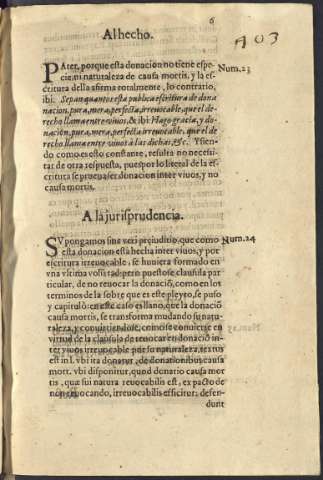 6
A 03
Al hecho.
PAter, porque esta donacion no tiene espe-
cie, ni naturaleza de causa mortis, y la es-
critura della afirma totalmente, lo contrario,
Num. 23
ibi. Sepan quantos esta publica escritura de dona
nacion, pura, mera, perfecta, irreuocable, que el de-
recho llama entre viuos, & ibi Hago gracia, y do-
nacion, pura, mera, perfecta irreuocable, que el de
recho llama entre viuos à las dichas, &c. Y sien-
do como es esto constante, resulta no necessi-
tar de otra respuesto, pues por lo literal de la es-
critura se prueua ser donacion inter viuos, y no
causa mortis.
A la jurisprudencia.
SVpongamos sine veri prejuditio, que como
Num. 24
esta donacion està hecha inter viuos, y por
escritura irreuocable, se huuiera formado en
vna vltima volũtad; pero puesto se clausula par
ticular, de no reuocar la donaciõ, como en los
terminos de la sobre que es este pleyto, se puso
y capitulò: en este caso es llano, que la donaciõ
causa mortis, se transforma mudando su natu-
raleza, y conuirtiendose, como se conuierte en
virtud de la clausula de reuocar en donaciõ in-
ter viuos irreuocable por su naturaleza, textus
est in l. vbi ita donatur, de donationibus causa
mort. vbi disponitur, quod donatio causa mor
tis, quæ sui natura reuocabilis est, ex pacto de
non reuocando, irreuocabilis efficitur: defen-
dunt